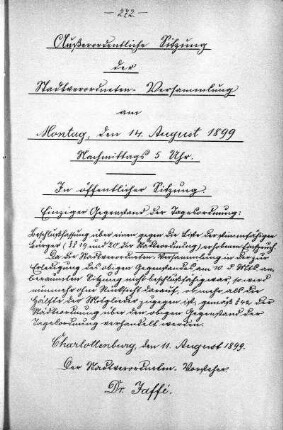 - 272. -
Außerordentliche Sitzung
der
Stadtverordneten-Versammlung
am
Montag, den 14. August 1899
Nachmittags 5 Uhr.
In öffentlicher Sitzung.
Einziger Gegenstand der Tagesordnung:
Beschlußfassung über einen gegen die Liste der stimmfähigen
Bürger (§§ 19 und 20 der Städteordnung) erhobenen Einspruch.
Da die Stadtverordneten-Versammlung in der zur
Erledigung des obigen Gegenstands am 10. d. Mts. an-
beraumten Sitzung nicht beschlußfähig war, so wird
nunmehr ohne Rücksicht darauf, ob mehr als die
Hälfte der Mitglieder zugegen ist, gemäß § 42 der
Städteordnung über den obigen Gegenstand der
Tagesordnung verhandelt werden.
Charlottenburg, den 11. August 1899.
Der Stadtverordneten-Vorsteher.
Dr. Jaffé.